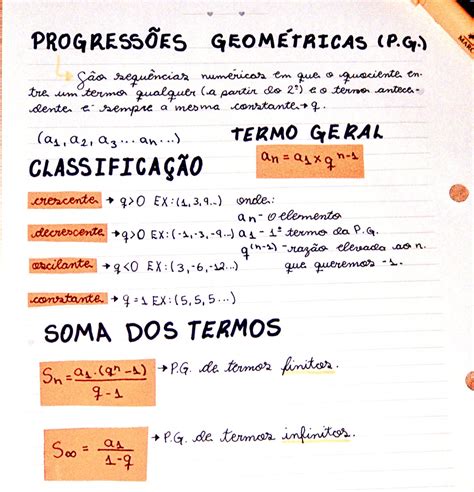 PROGRESSÕES GEOMÉTRICAS (P.G.)
↳ São sequências numéricas em que o quociente en-
tre um termo qualquer (a partir do 2º) e o termo antece-
dente é sempre a mesma constante → q.
(a₁, a₂, a₃ ... an ...)
TERMO GERAL
an = a₁ × q ⁿ⁻¹
CLASSIFICAÇÃO
crescente → q>0 EX: (1, 3, 9...)
decrescente → q>0 EX: (-1, -3, -9...)
oscilante → q<0 EX: (3, -6, -12...)
constante → q = 1 EX: (5, 5, 5...)
onde:
an - o elemento
a₁ - 1º termo da P.G.
q⁽ⁿ⁻¹⁾ - razão elevada ao n.
que queremos -1.
SOMA DOS TERMOS
Sn = a₁ . (qⁿ - 1) / q - 1 → P.G. de termos finitos.
S∞ = a₁ / 1 - q → P.G. de termos infinitos.